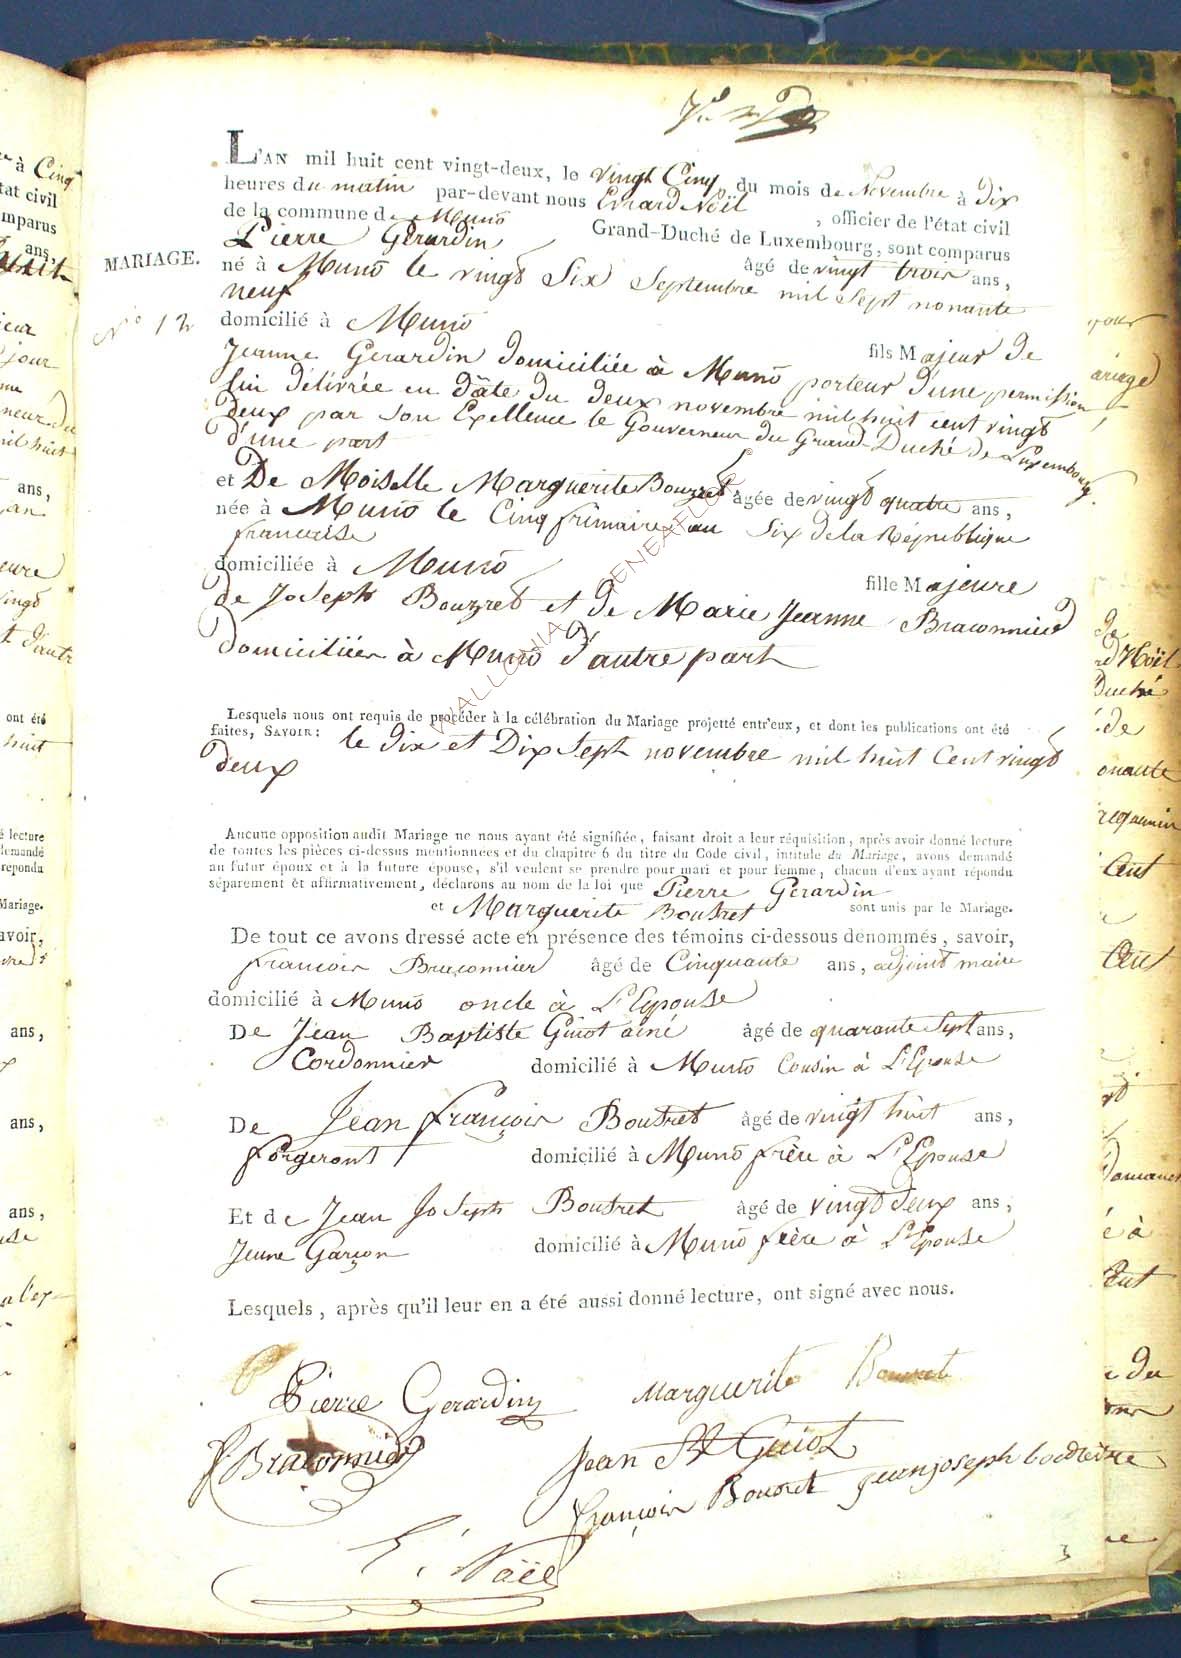 L'AN mil huit cent vingt-deux, le vingt Cinq du mois de Novembre à Dix
heures du matin par-devant nous Evrard Noël, officier de l'état civil
de la commune de Muno Grand-Duché de Luxembourg, sont comparus
Pierre Gerardin âgé de vingt trois ans,
MARIAGE.
né à Muno le vingt Six Septembre mil Sept nonante
neuf
N° 12
domicilié à Muno fils Majeur de
Jeanne Gerardin domiciliée à Muno porteur d'une permission
lui délivrée en dâte du deux novembre mil huit cent vingt
deux par son Exellence le Gouverneur du Grand-Duché de Luxembourg.
d'une part
et De Moiselle Marguerite Bouzret âgée de vingt quatre ans,
née à Muno le Cinq frimaire an Six de la République
francaise
domiciliée à Muno fille Majeure
de Joseph Bouzret et de Marie Jeanne Braconnier
domiciliiés à Muno d'autre part
WALLONIA GENEAFLOR
Lesquels nous ont requis de procéder à la célébration du Mariage projetté entr'eux, et dont les publications ont été
faites, SAVOIR: le dix et Dix Sept novembre mil huit Cent vingt
deux
Aucune opposition audit Mariage ne nous ayant été signifiée, faisant droit a leur réquisition, après avoir donné lecture
de toutes les pièces ci-dessus mentionnées et du chapitre 6 du titre du Code civil, intitule du Mariage, avons demandé
au futur époux et à la future épouse, s'il veulent se prendre pour mari et pour femme, chacun d'eux ayant répondu
séparement et affirmativement, déclarons au nom de la loi que Pierre Gerardin
et Marguerite Boutret sont unis par le Mariage.
De tout ce avons dressé acte en présence des témoins ci-dessous dénommés, savoir,
francois Braconnier âgé de Cinquante ans, adjoint maire
domicilié à Muno oncle à L'Epouse
De Jean Baptiste Guiot ainé âgé de quarante Sept ans,
Cordonnier domicilié à Muno Cousin à L'Epouse
De Jean françois Boutret âgé de vingt huit ans,
forgeront domicilié à Muno frère à L'Epouse
Et de Jean Joseph Boutret âgé de vingt deux ans,
Jeune Garçon domicilié à Muno frère à L'Epouse
Lesquels, après qu'il leur en a été aussi donné lecture, ont signé avec nous.
Pierre Gerardin Marguerite
Braconnier Jean Bt Guiot
françois Bouret jeanjoseph
E. Noël